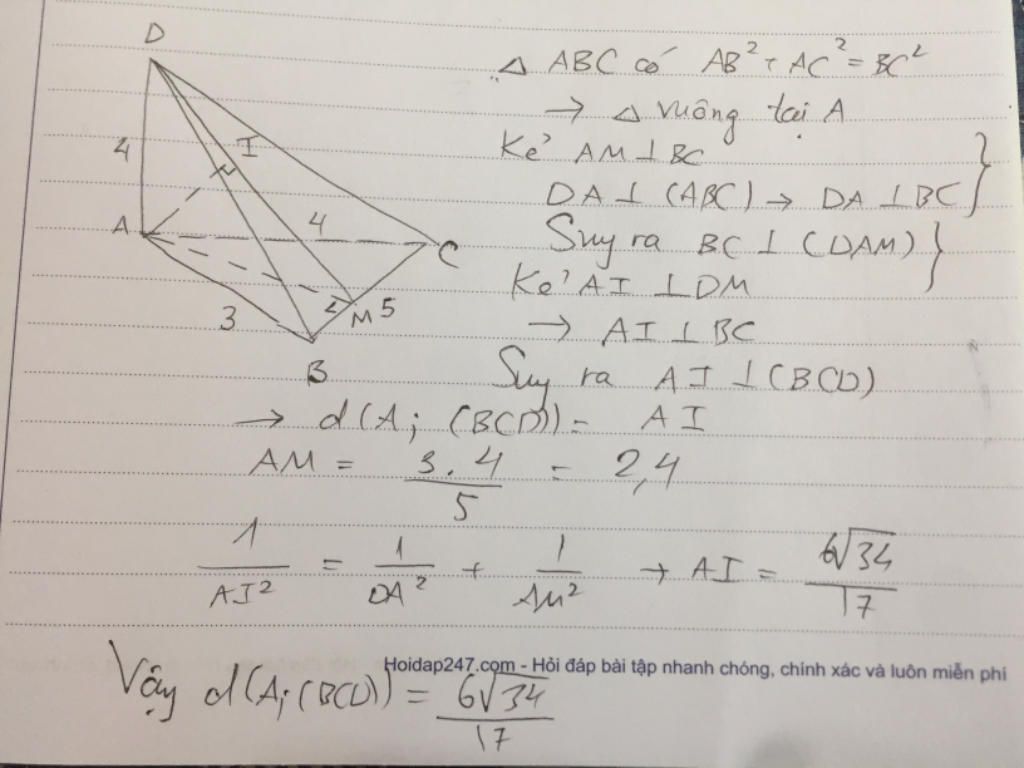 D
4
I
A
4
C
3
2
M 5
B
Δ ABC có AB² + AC² = BC²
→ Δ vuông tại A
Kẻ AM ⊥ BC
DA ⊥ (ABC) → DA ⊥ BC }
Suy ra BC ⊥ (DAM) }
Kẻ AI ⊥ DM
→ AI ⊥ BC
Suy ra AI ⊥ (BCD)
→ d(A; (BCD)) = AI
AM = 3.4/5 = 2,4
1/AI² = 1/DA² + 1/AM² → AI = 6√34/17
Hoidap247.com - Hỏi đáp bài tập nhanh chóng, chính xác và luôn miễn phí
Vậy d(A;(BCD)) = 6√34/17